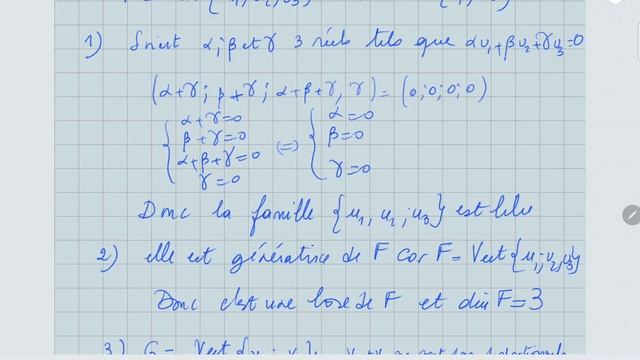 1) Soient α, β et γ 3 réels tels que αu₁+βu₂+γu₃=0
(α+γ; β+γ; α+β+γ, γ) = (0;0;0;0)
{ α+γ=0 β+γ=0 α+β+γ=0 γ=0 (=) { α=0 β=0 γ=0
Donc la famille {u₁, u₂; u₃} est libre
2) elle est génératrice de F car F = Vect{u₁; u₂, u₃}
Donc c'est une base de F et dim F = 3
3) G = Vect